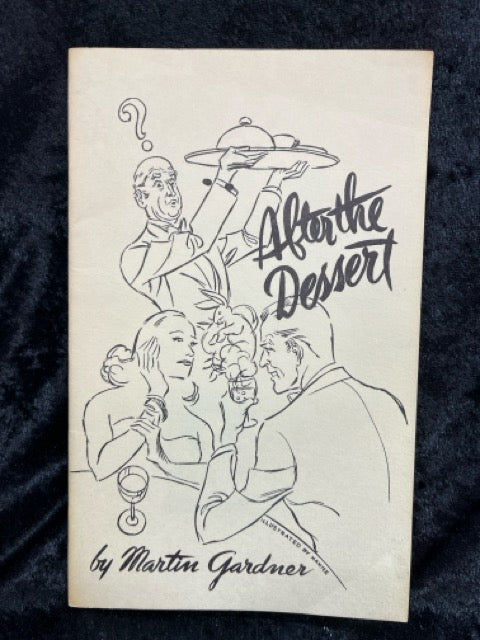 ?
After the
Dessert
ILLUSTRATED BY
by Martin Gardner